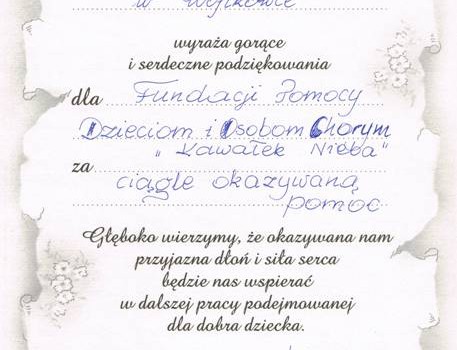 w Wójkowie
wyraża gorące
i serdeczne podziękowania
dla Fundacji Pomocy
Dzieciom i Osobom Chorym
"Kawałek Nieba"
za ciągle okazywaną
pomóc
Głęboko wierzymy, że okazywana nam
przyjazna dłoń i siła serca
będzie nas wspierać
w dalszej pracy podejmowanej
dla dobra dziecka.